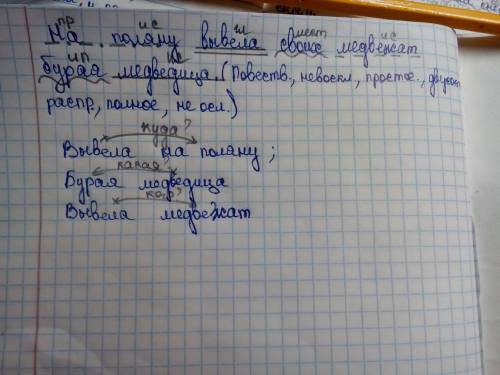 пр ис гл мест ис
На поляну вывела своих медвежат
ис
бурая медведица. (Повеств., невоскл, простое.,
распр, полное, не осл.)
куда?
Вывела на поляну;
какая?
Бурая медведица
кого?
Вывела медвежат